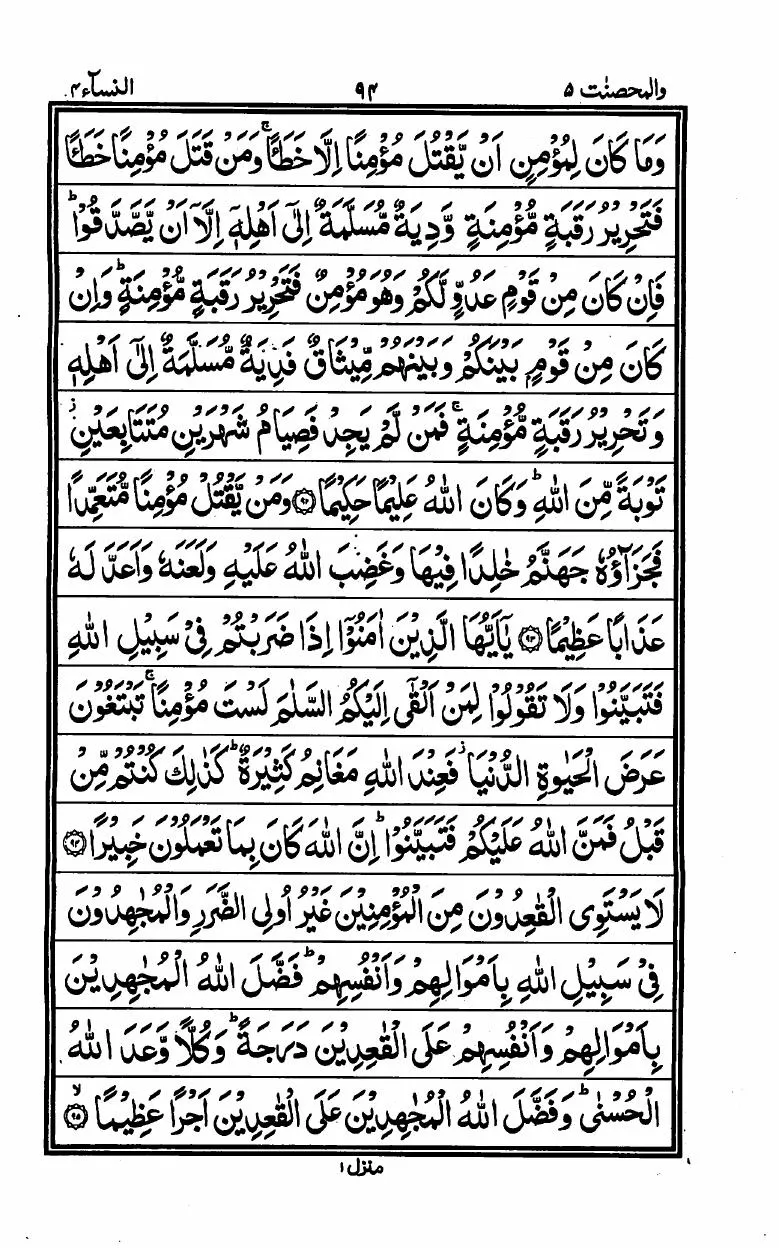 والمحصنت ۵ ۹۴ النسآء ۴
وَمَا كَانَ لِمُؤْمِنٍ اَنْ يَّقْتُلَ مُؤْمِنًا اِلَّا خَطَـًٔا ۚ وَمَنْ قَتَلَ مُؤْمِنًا خَطَـًٔا
فَتَحْرِيْرُ رَقَبَةٍ مُّؤْمِنَةٍ وَّدِيَةٌ مُّسَلَّمَةٌ اِلٰٓى اَهْلِهٖٓ اِلَّآ اَنْ يَّصَّدَّقُوْا ؕ
فَاِنْ كَانَ مِنْ قَوْمٍ عَدُوٍّ لَّكُمْ وَهُوَ مُؤْمِنٌ فَتَحْرِيْرُ رَقَبَةٍ مُّؤْمِنَةٍ ؕ وَاِنْ
كَانَ مِنْ قَوْمٍۭ بَيْنَكُمْ وَبَيْنَهُمْ مِّيْثَاقٌ فَدِيَةٌ مُّسَلَّمَةٌ اِلٰٓى اَهْلِهٖ
وَتَحْرِيْرُ رَقَبَةٍ مُّؤْمِنَةٍ ۚ فَمَنْ لَّمْ يَجِدْ فَصِيَامُ شَهْرَيْنِ مُتَتَابِعَيْنِ ز
تَوْبَةً مِّنَ اللّٰهِ ؕ وَكَانَ اللّٰهُ عَلِيْمًا حَكِيْمًا ۝۹۲ وَمَنْ يَّقْتُلْ مُؤْمِنًا مُّتَعَمِّدًا
فَجَزَآؤُهٗ جَهَنَّمُ خٰلِدًا فِيْهَا وَغَضِبَ اللّٰهُ عَلَيْهِ وَلَعَنَهٗ وَاَعَدَّ لَهٗ
عَذَابًا عَظِيْمًا ۝۹۳ يٰٓاَيُّهَا الَّذِيْنَ اٰمَنُوْٓا اِذَا ضَرَبْتُمْ فِيْ سَبِيْلِ اللّٰهِ
فَتَبَيَّنُوْا وَلَا تَقُوْلُوْا لِمَنْ اَلْقٰٓى اِلَيْكُمُ السَّلٰمَ لَسْتَ مُؤْمِنًا ۚ تَبْتَغُوْنَ
عَرَضَ الْحَيٰوةِ الدُّنْيَا ز فَعِنْدَ اللّٰهِ مَغَانِمُ كَثِيْرَةٌ ؕ كَذٰلِكَ كُنْتُمْ مِّنْ
قَبْلُ فَمَنَّ اللّٰهُ عَلَيْكُمْ فَتَبَيَّنُوْا ؕ اِنَّ اللّٰهَ كَانَ بِمَا تَعْمَلُوْنَ خَبِيْرًا ۝۹۴
لَا يَسْتَوِى الْقٰعِدُوْنَ مِنَ الْمُؤْمِنِيْنَ غَيْرُ اُولِى الضَّرَرِ وَالْمُجٰهِدُوْنَ
فِيْ سَبِيْلِ اللّٰهِ بِاَمْوَالِهِمْ وَاَنْفُسِهِمْ ؕ فَضَّلَ اللّٰهُ الْمُجٰهِدِيْنَ
بِاَمْوَالِهِمْ وَاَنْفُسِهِمْ عَلَى الْقٰعِدِيْنَ دَرَجَةً ؕ وَكُلًّا وَّعَدَ اللّٰهُ
الْحُسْنٰى ؕ وَفَضَّلَ اللّٰهُ الْمُجٰهِدِيْنَ عَلَى الْقٰعِدِيْنَ اَجْرًا عَظِيْمًا ۝۹۵ لا
منزل ۱